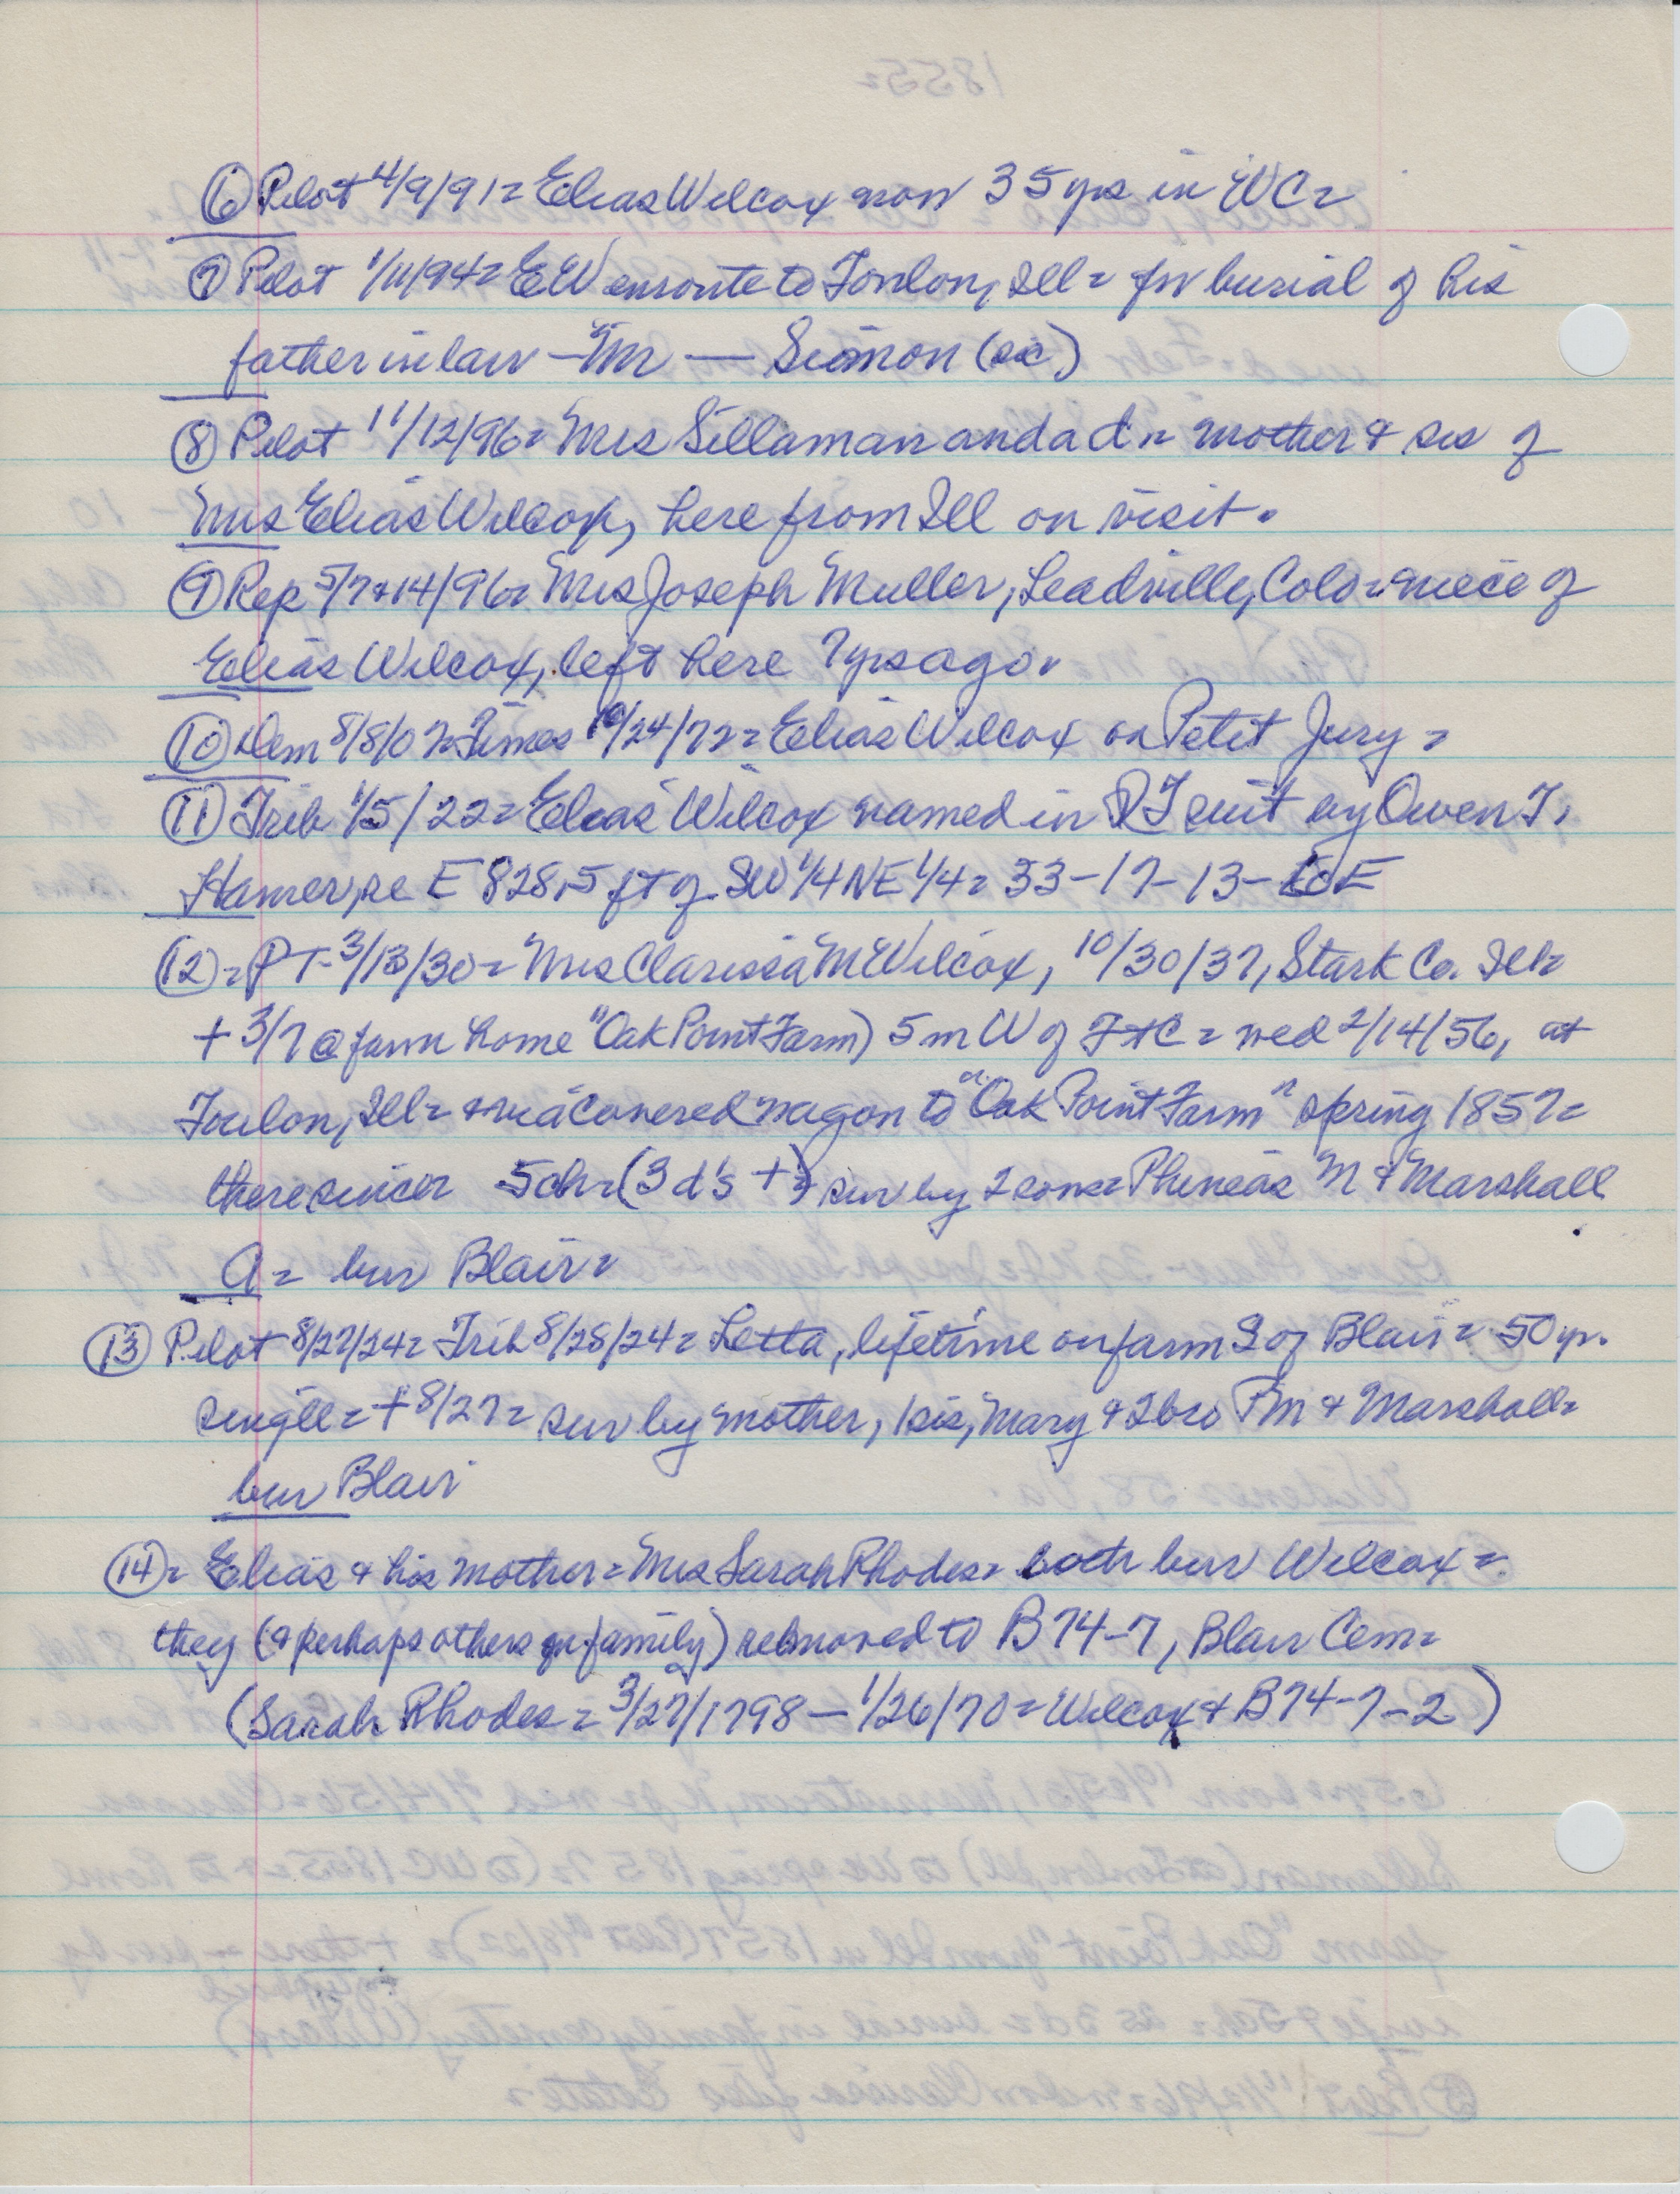 ⑥ Pilot 4/9/91= Elias Wilcox now 35 yrs in WC=
⑦ Pilot 1/11/94= EW enroute to Toulon, Ill= for burial of his
father in law — Mr — Siomon (sic)
⑧ Pilot 11/12/96= Mrs Sillaman and a d= mother & sis of
Mrs Elias Wilcox, here from Ill on visit.
⑨ Rep 5/7&14/96= Mrs Joseph Muller, Leadville, Colo= niece of
Elias Wilcox, left here 7 yrs ago.
⑩ Dem 8/8/07= Times 10/24/72= Elias Wilcox on Petit Jury=
⑪ Trib 1/5/22= Elias Wilcox named in QT suit by Owen T.
Hamer, re E 828.5 ft of SW 1/4 NE 1/4= 33-17-13-E
⑫= PT-3/13/30= Mrs Clarissa M Wilcox, 10/30/37, Stark Co. Ill=
+ 3/7 @ farm home "Oak Point Farm) 5 m W of FtC= wed 2/14/56, at
Toulon, Ill= & via covered wagon to "Oak Point Farm" spring 1857=
there since= 5 ch= (3 d's +) sur by 2 sons= Phineas M & Marshall
A= bur Blair=
⑬ Pilot 8/27/24= Trib 8/28/24= Letta, lifetime on farm S of Blair= 50 yr.
single= + 8/27= sur by mother, 1 sis, Mary & 2 bro PM & Marshall=
bur Blair
⑭= Elias & his mother= Mrs Sarah Rhodes= both bur Wilcox=
they (& perhaps others in family) removed to B74-7, Blair Cem=
(Sarah Rhodes= 3/27/1798 — 1/26/70= Wilcox & B74-7-2)